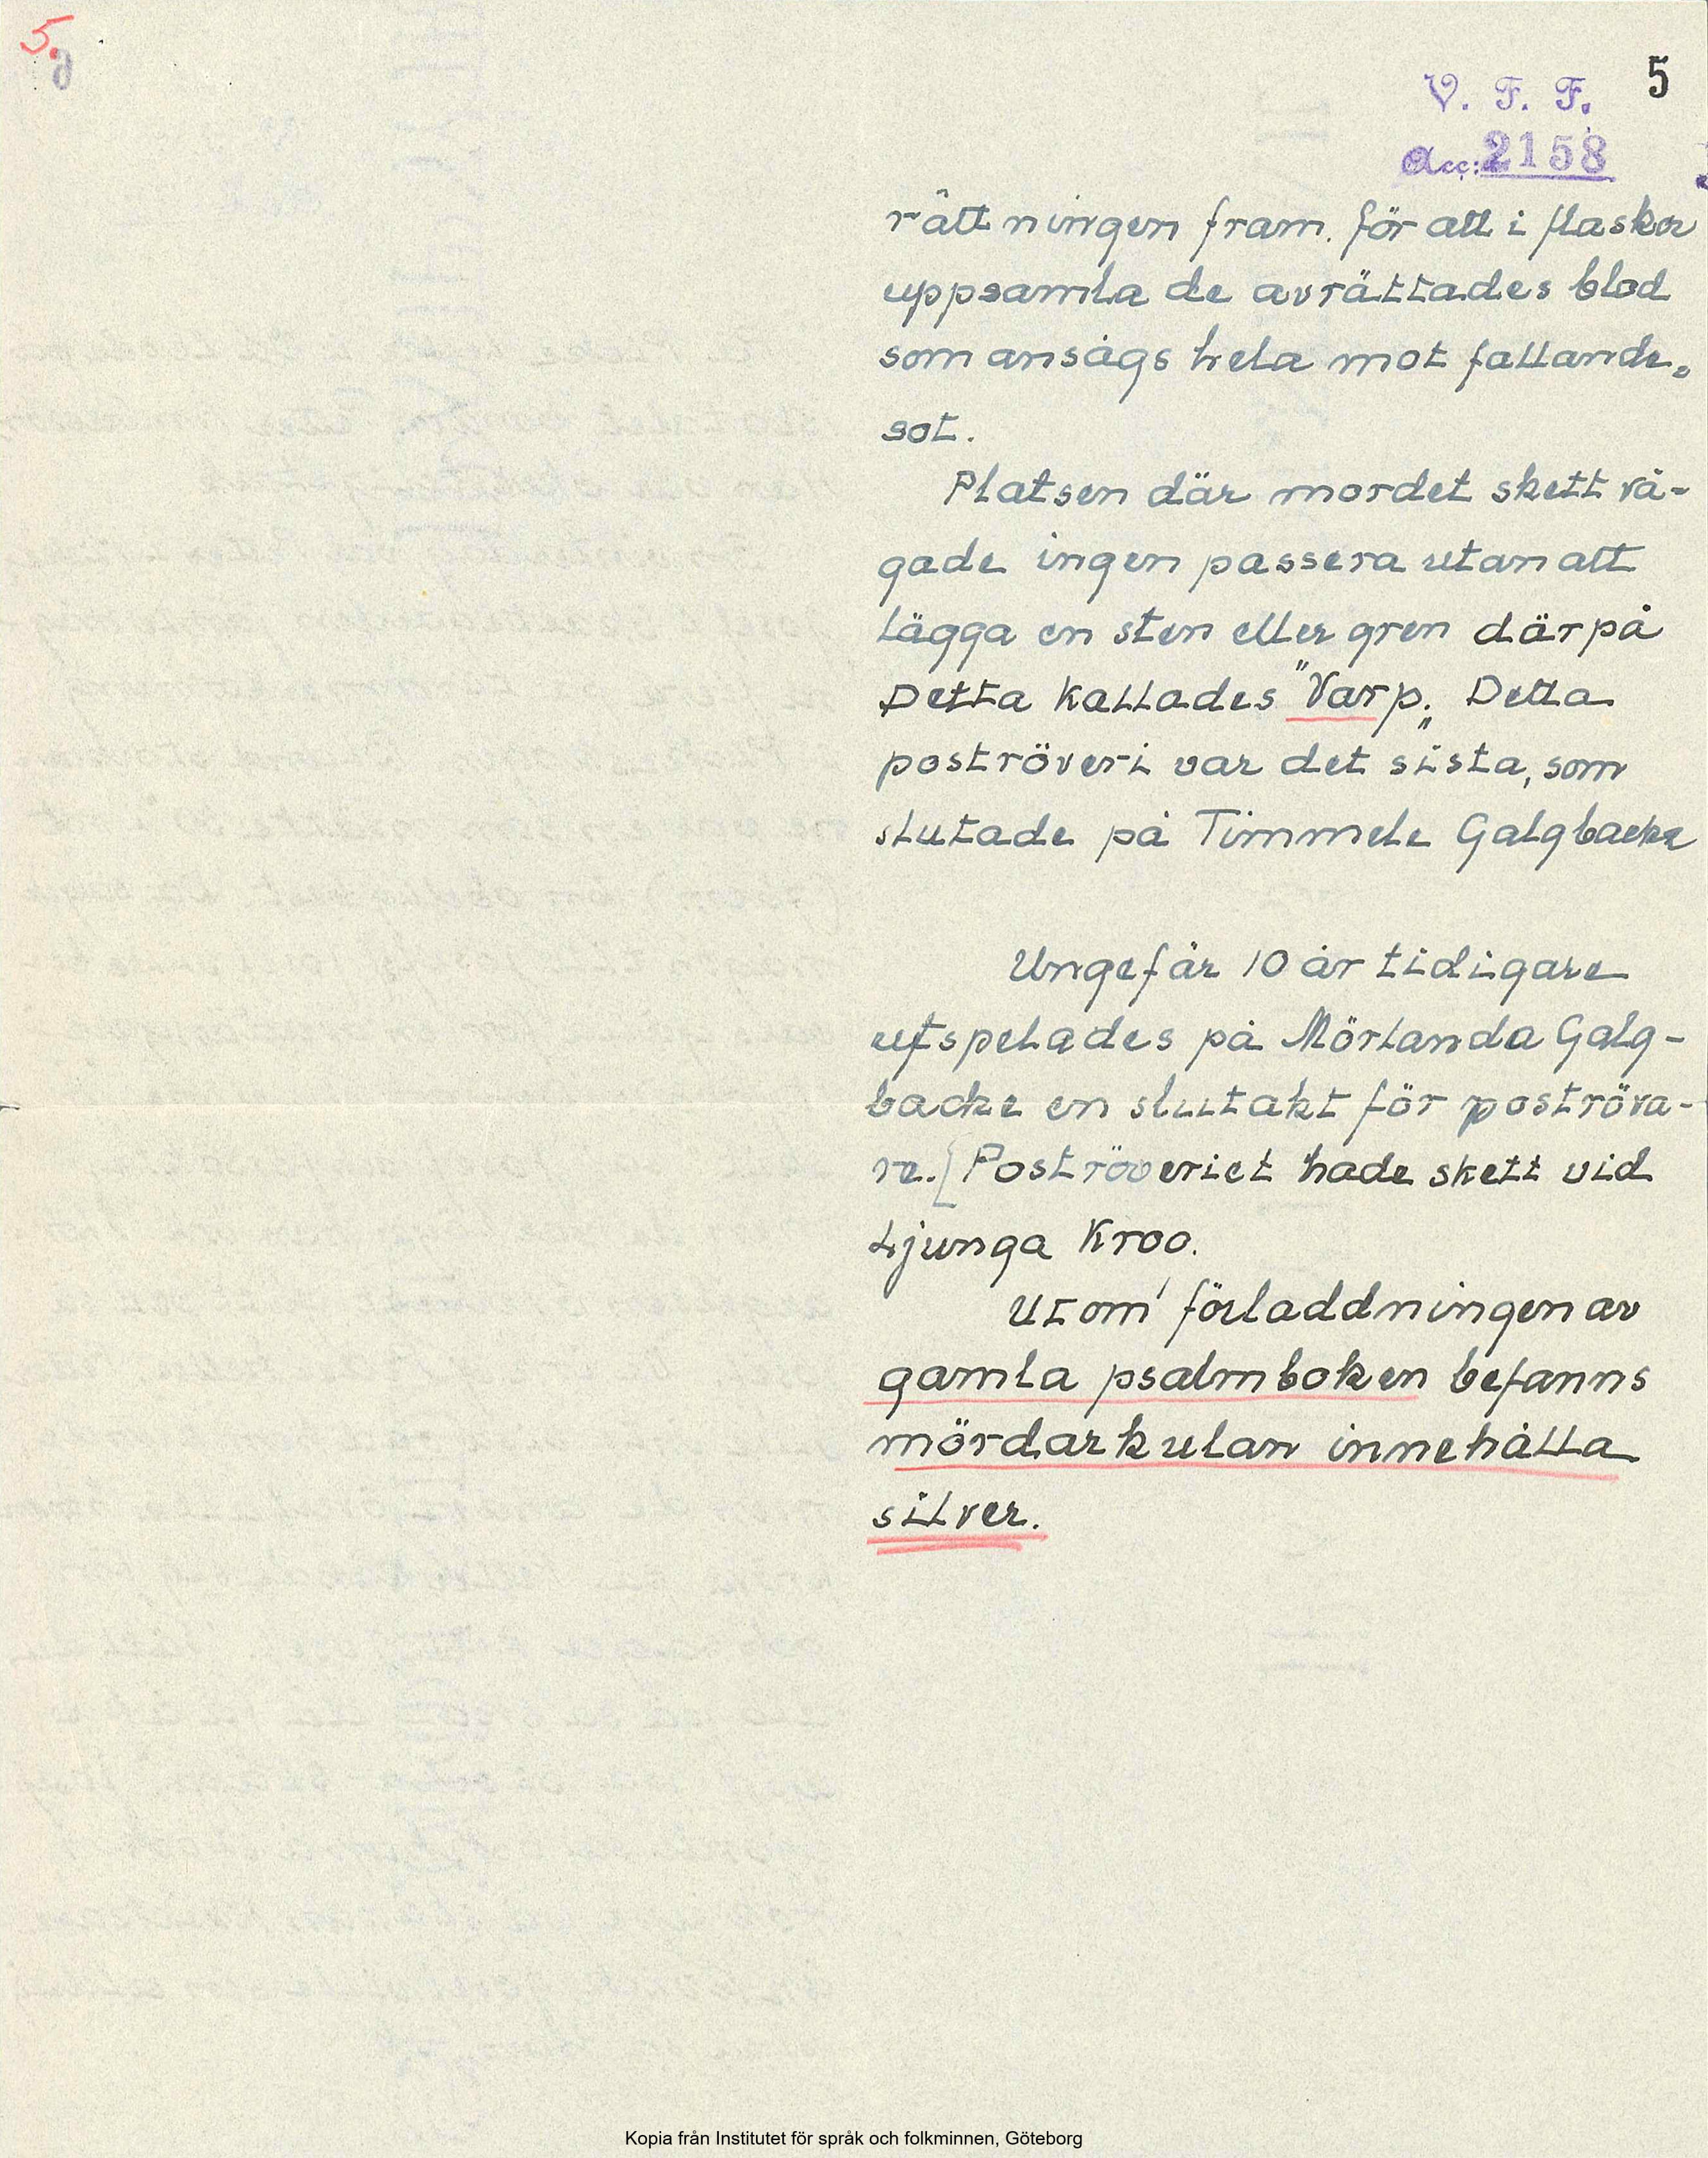 5.
5
V. F. F.
Acc: 2158
rättningen fram. för att i flaskor
uppsamla de avrättades blod
som ansågs hela mot fallande=
sot.
Platsen där mordet skett vå-
gade ingen passera utan att
lägga en sten eller gren därpå
Detta kallades "Varp." Detta
poströveri var det sista, som
slutade på Timmele Galgbacke
Ungefär 10 år tidigare
utspelades på Mörlanda Galg-
backe en slutakt för poströva-
re. [Poströveriet hade skett vid
Ljunga Kroo.
Utom förladdningen av
gamla psalmboken befanns
mördarkulan innehålla
silver.
Kopia från Institutet för språk och folkminnen, Göteborg